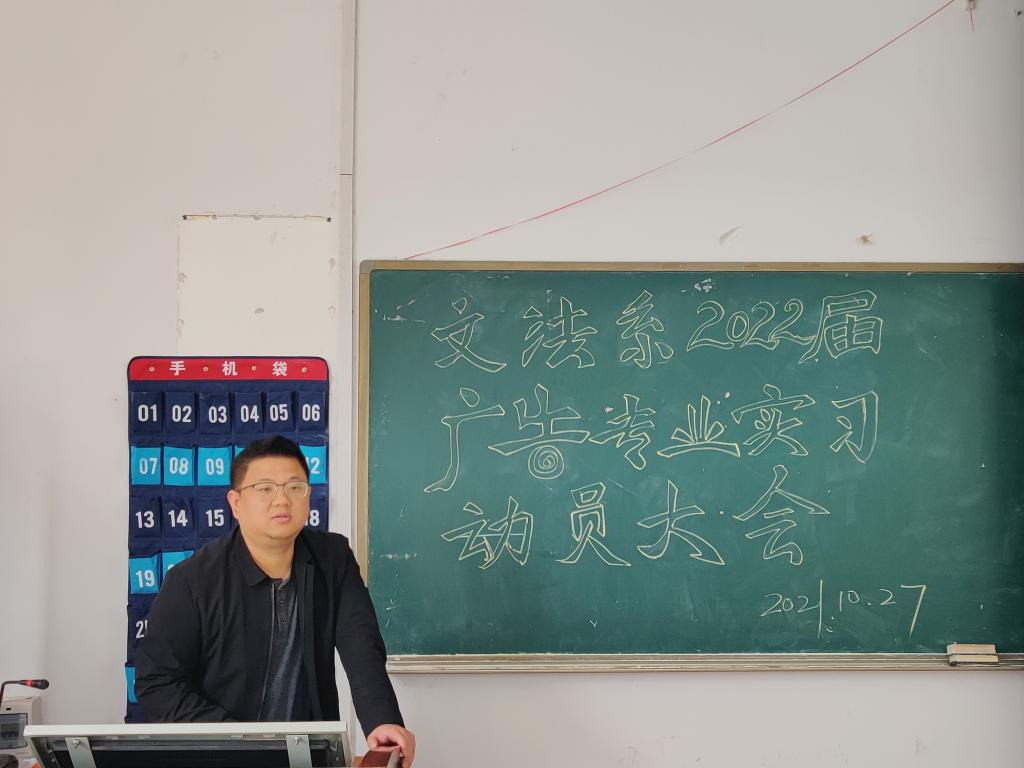 手机袋
01 02 03 04 05 06
07 08 09
13 14 15
19
文法系2022届
广告专业实习
动员大会
2021.10.27